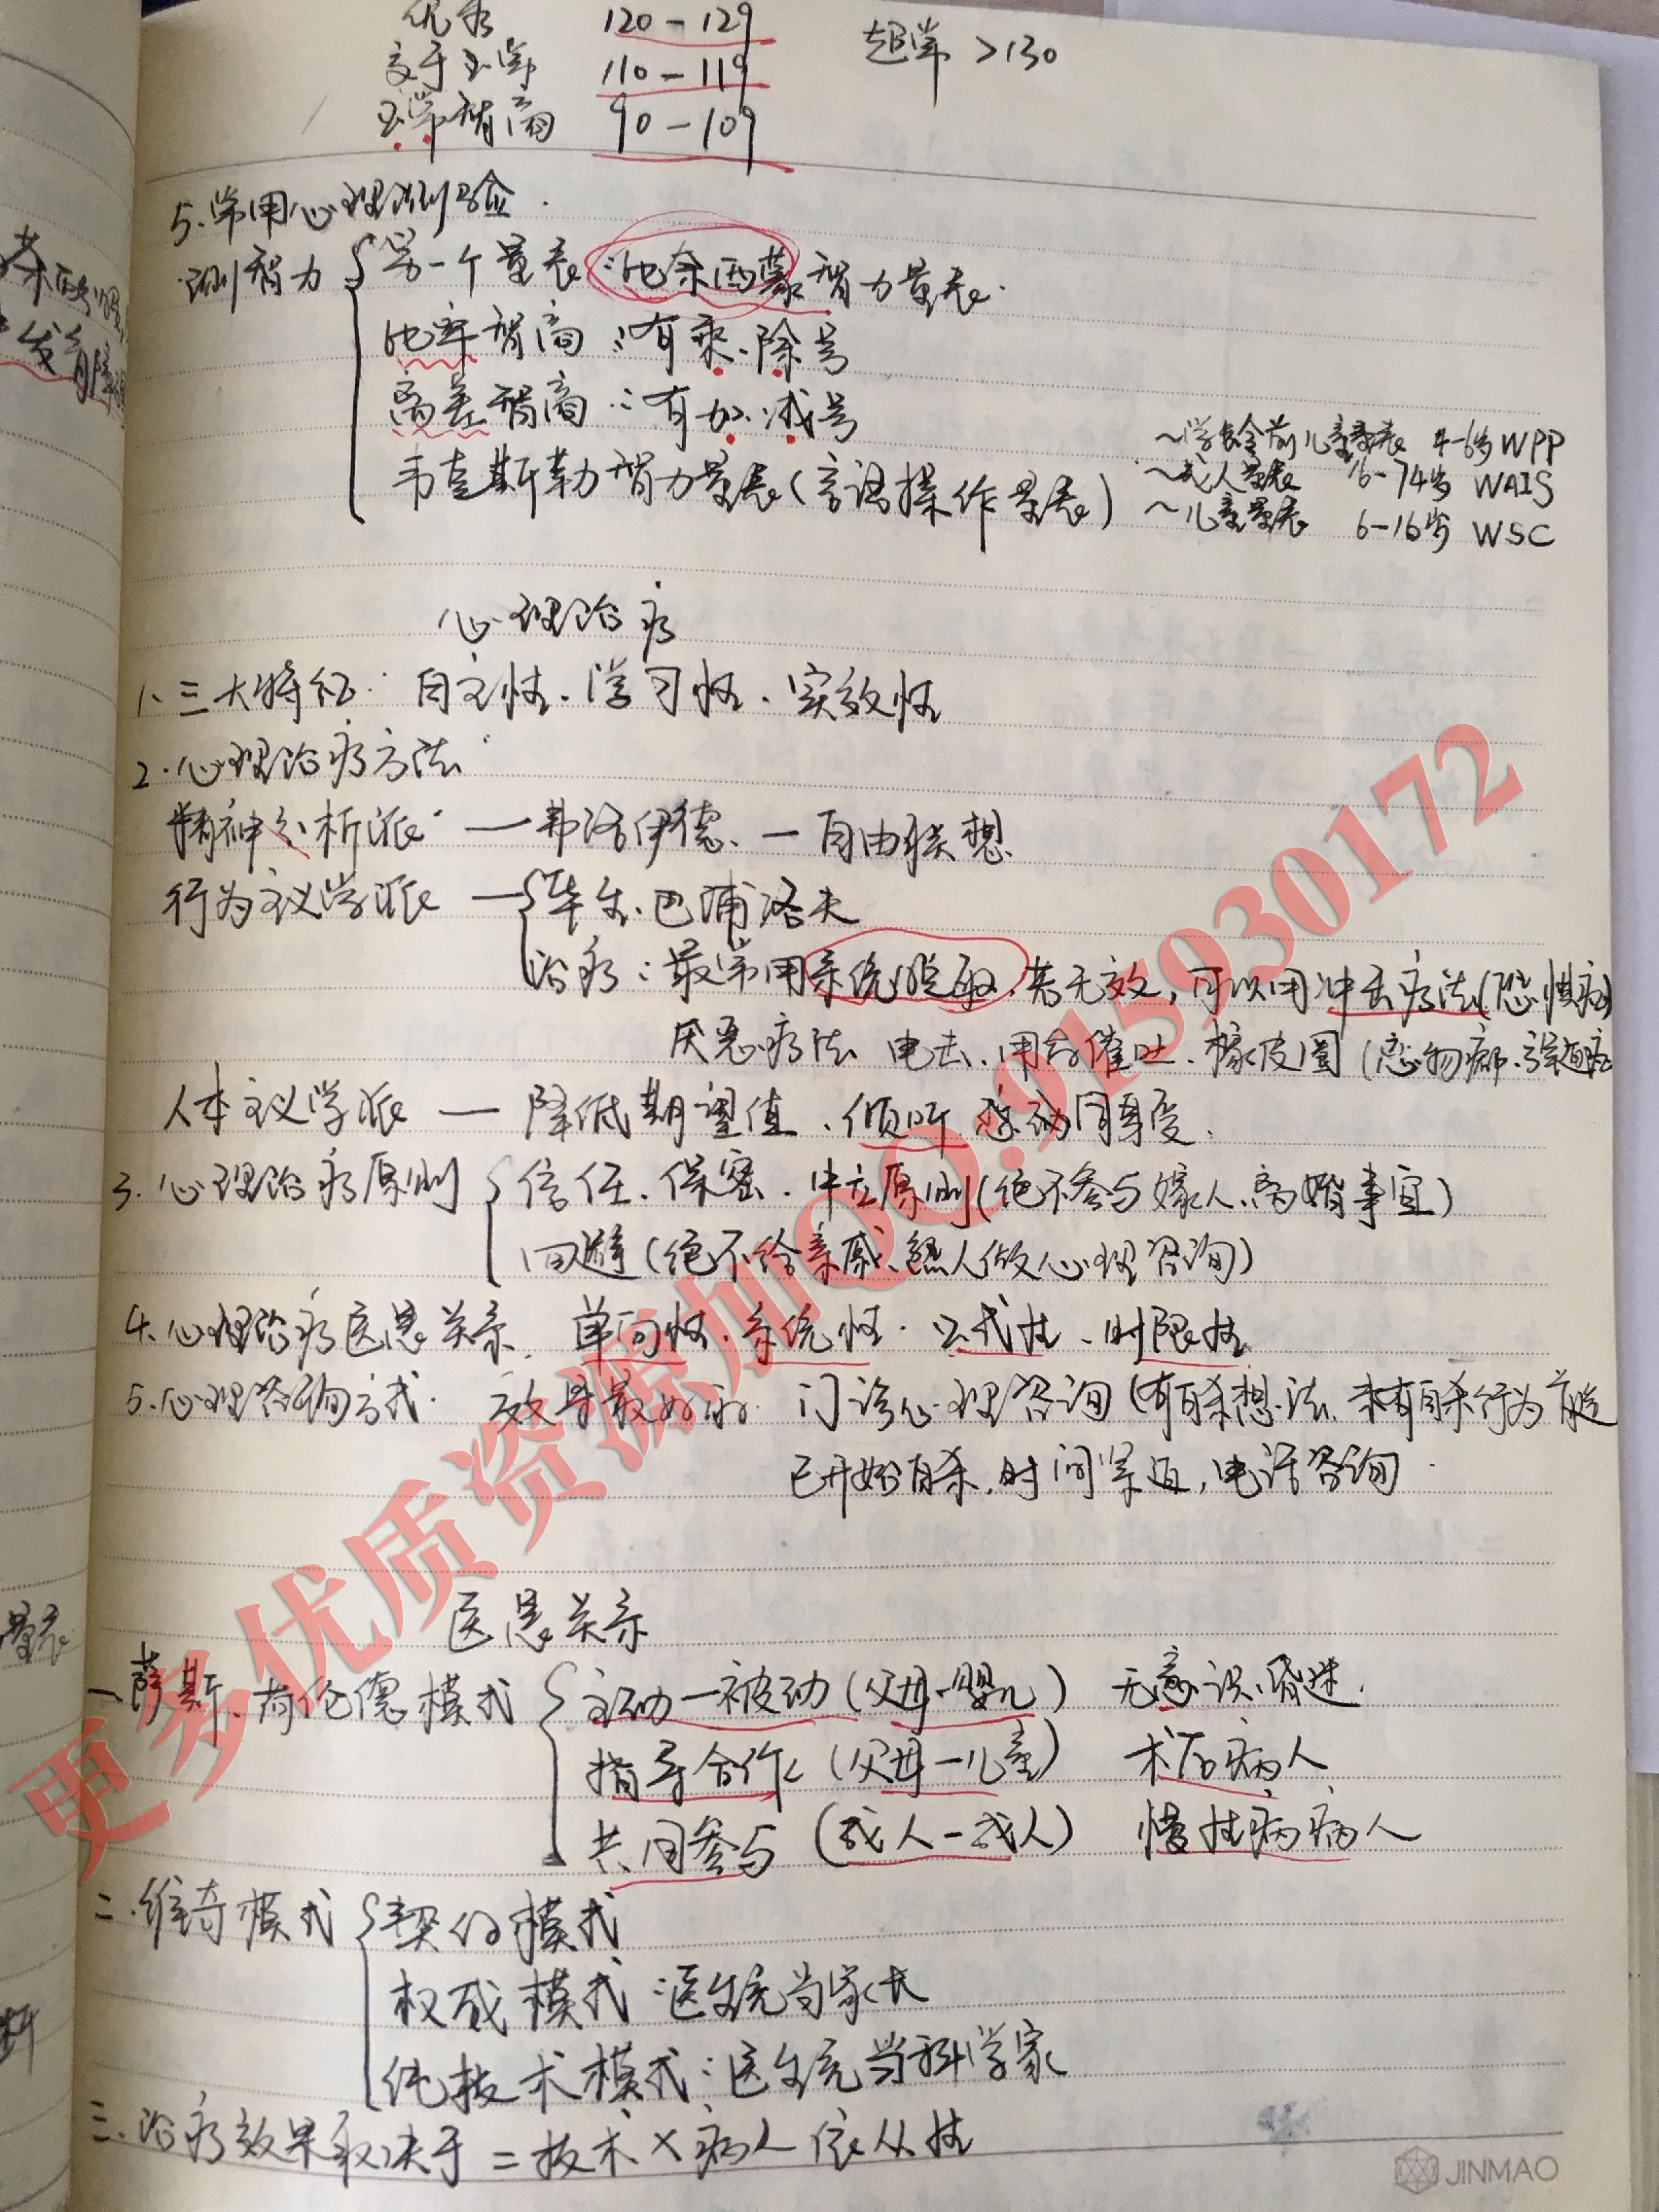 优秀 120-129 超常 >130
高于正常 110-119
正常智商 90-109
5.常用心理测验.
测智力 第一个量表:比奈西蒙智力量表.
比率智商:有乘.除号
离差智商:有加.减号
~学龄前儿童量表 4-6岁 WPP
~成人量表 16-74岁 WAIS
韦克斯勒智力量表(言语操作量表) ~儿童量表 6-16岁 WSC
心理治疗
1、三大特征: 自主性.学习性.实效性
2.心理治疗方法
精神分析派 — 弗洛伊德、— 自由联想
行为主义学派 — 华生.巴浦洛夫
治疗:最常用系统脱敏.若无效,可以用冲击疗法(恐惧症)
厌恶疗法 电击.用药催吐.橡皮圈(恋物癖.强迫症
人本主义学派 — 降低期望值、倾听.感动同身受.
3.心理治疗原则 信任.保密.中立原则(绝不参与嫁人.离婚事宜)
回避(绝不给亲戚、熟人做心理咨询)
4.心理治疗医患关系. 单向性.系统性.公式性.时限性
5.心理咨询方式. 效果最好的. 门诊心理咨询(有自杀想法.未有自杀行为前提
已开始自杀.时间紧迫,电话咨询.
医患关系
一萨斯.荷伦德模式 主动—被动(父母-婴儿) 无意识.昏迷.
指导合作(父母—儿童) 术后病人
共同参与(成人—成人) 慢性病病人
二.维奇模式 契约模式
权威模式:医生充当家长
纯技术模式:医生充当科学家
三.治疗效果取决于=技术×病人依从性
更多优质资源加QQ:915930172
JINMAO
发育障
量表